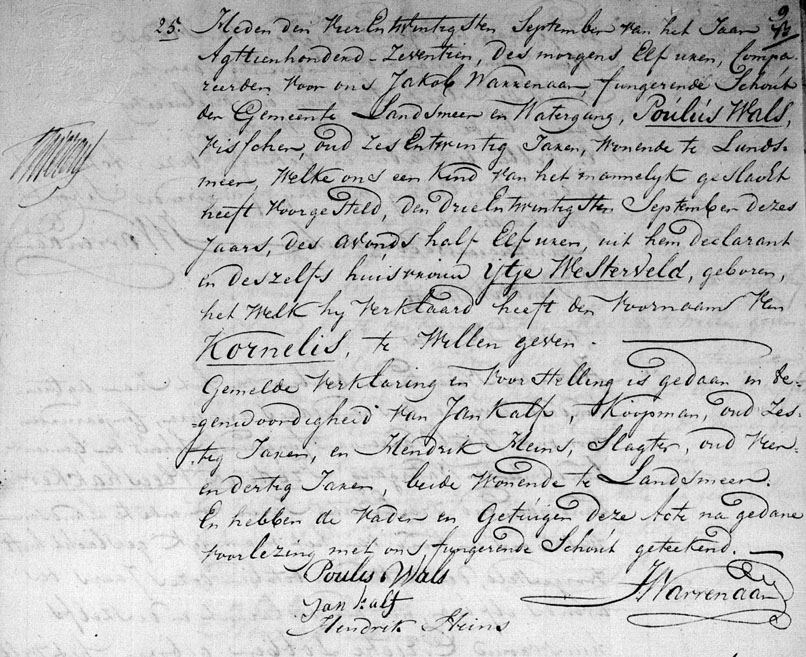 9
25. Heden den vier Entwintigsten September van het Jaar
Agttienhonderd-Zeventien, des morgens Elf uren, Compa-
reerden voor ons Jakob Warrenaar, fungerende Schout
der Gemeente Landsmeer en Watergang, Poúlús Wals,
visscher, oud Zes Entwintig Jaren, Wonende te Lands-
meer, Welke ons een Kind van het mannelyk geslacht
heeft voorgesteld, den drie Entwintigsten September dezes
Jaars, des avonds half Elf uren, uit hem declarant
en deszelfs huisvrouw Ytje Westerveld, geboren,
het Welk hy verklaard heeft den voornaam van
Kornelis, te Willen geven.
Gemelde verklaring en voorstelling is gedaan in te-
-genswoordigheid van Jan Kalf, Koopman, oud Zes-
-tig Jaren, en Hendrik Heins, Slagter, oud vier-
endertig Jaren, beide Wonende te Landsmeer.
En hebben de vader en Getúigen deze Acte na gedane
voorlezing met ons fungerende Schoút geteekend.
Poulus Wals
JWarrenaar
Jan Kalf
Hendrik Heins